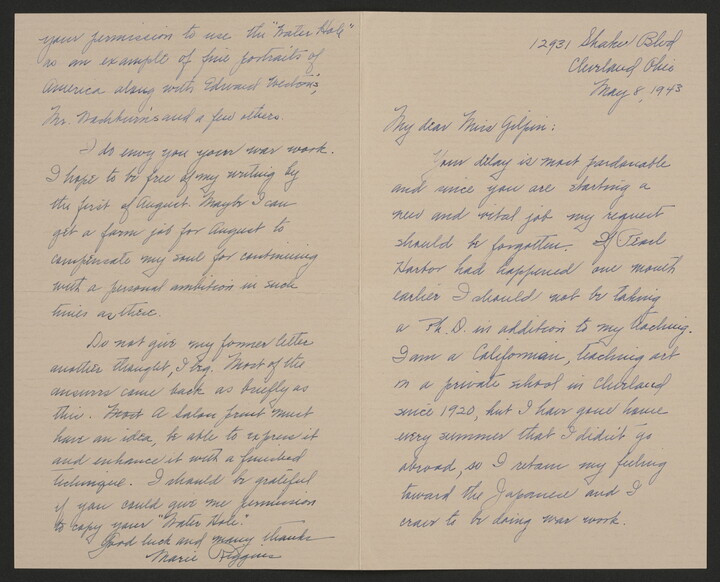 12931 Shaker Blvd
Cleveland Ohio
May 8, 1943
My dear Miss Gilpin:
Your delay is most pardonable
and since you are starting a
new and vital job my request
should be forgotten. If Pearl
Harbor had happened one month
earlier I should not be taking
a Ph.D. in addition to my teaching.
I am a Californian, teaching art
in a private school in Cleveland
since 1920, but I have gone home
every summer that I didn't go
abroad, so I retain my feeling
toward the Japanese and I
crave to be doing war work.
your permission to use the "Water Hole"
as an example of fine portraits of
America along with Edward Weston's,
Mr. Washburn's and a few others.
I do envy you your war work.
I hope to be free of my writing by
the first of August. Maybe I can
get a farm job for August to
compensate my soul for continuing
with a personal ambition in such
times as these.
Do not give my former letter
another thought, I beg. Most of the
answers come back as briefly as
this. Most A Salon print must
have an idea, be able to express it
and enhance it with a finished
technique. I should be grateful
if you could give me permission
to copy your "Water Hole."
Good luck and many thanks
Marie Higgins